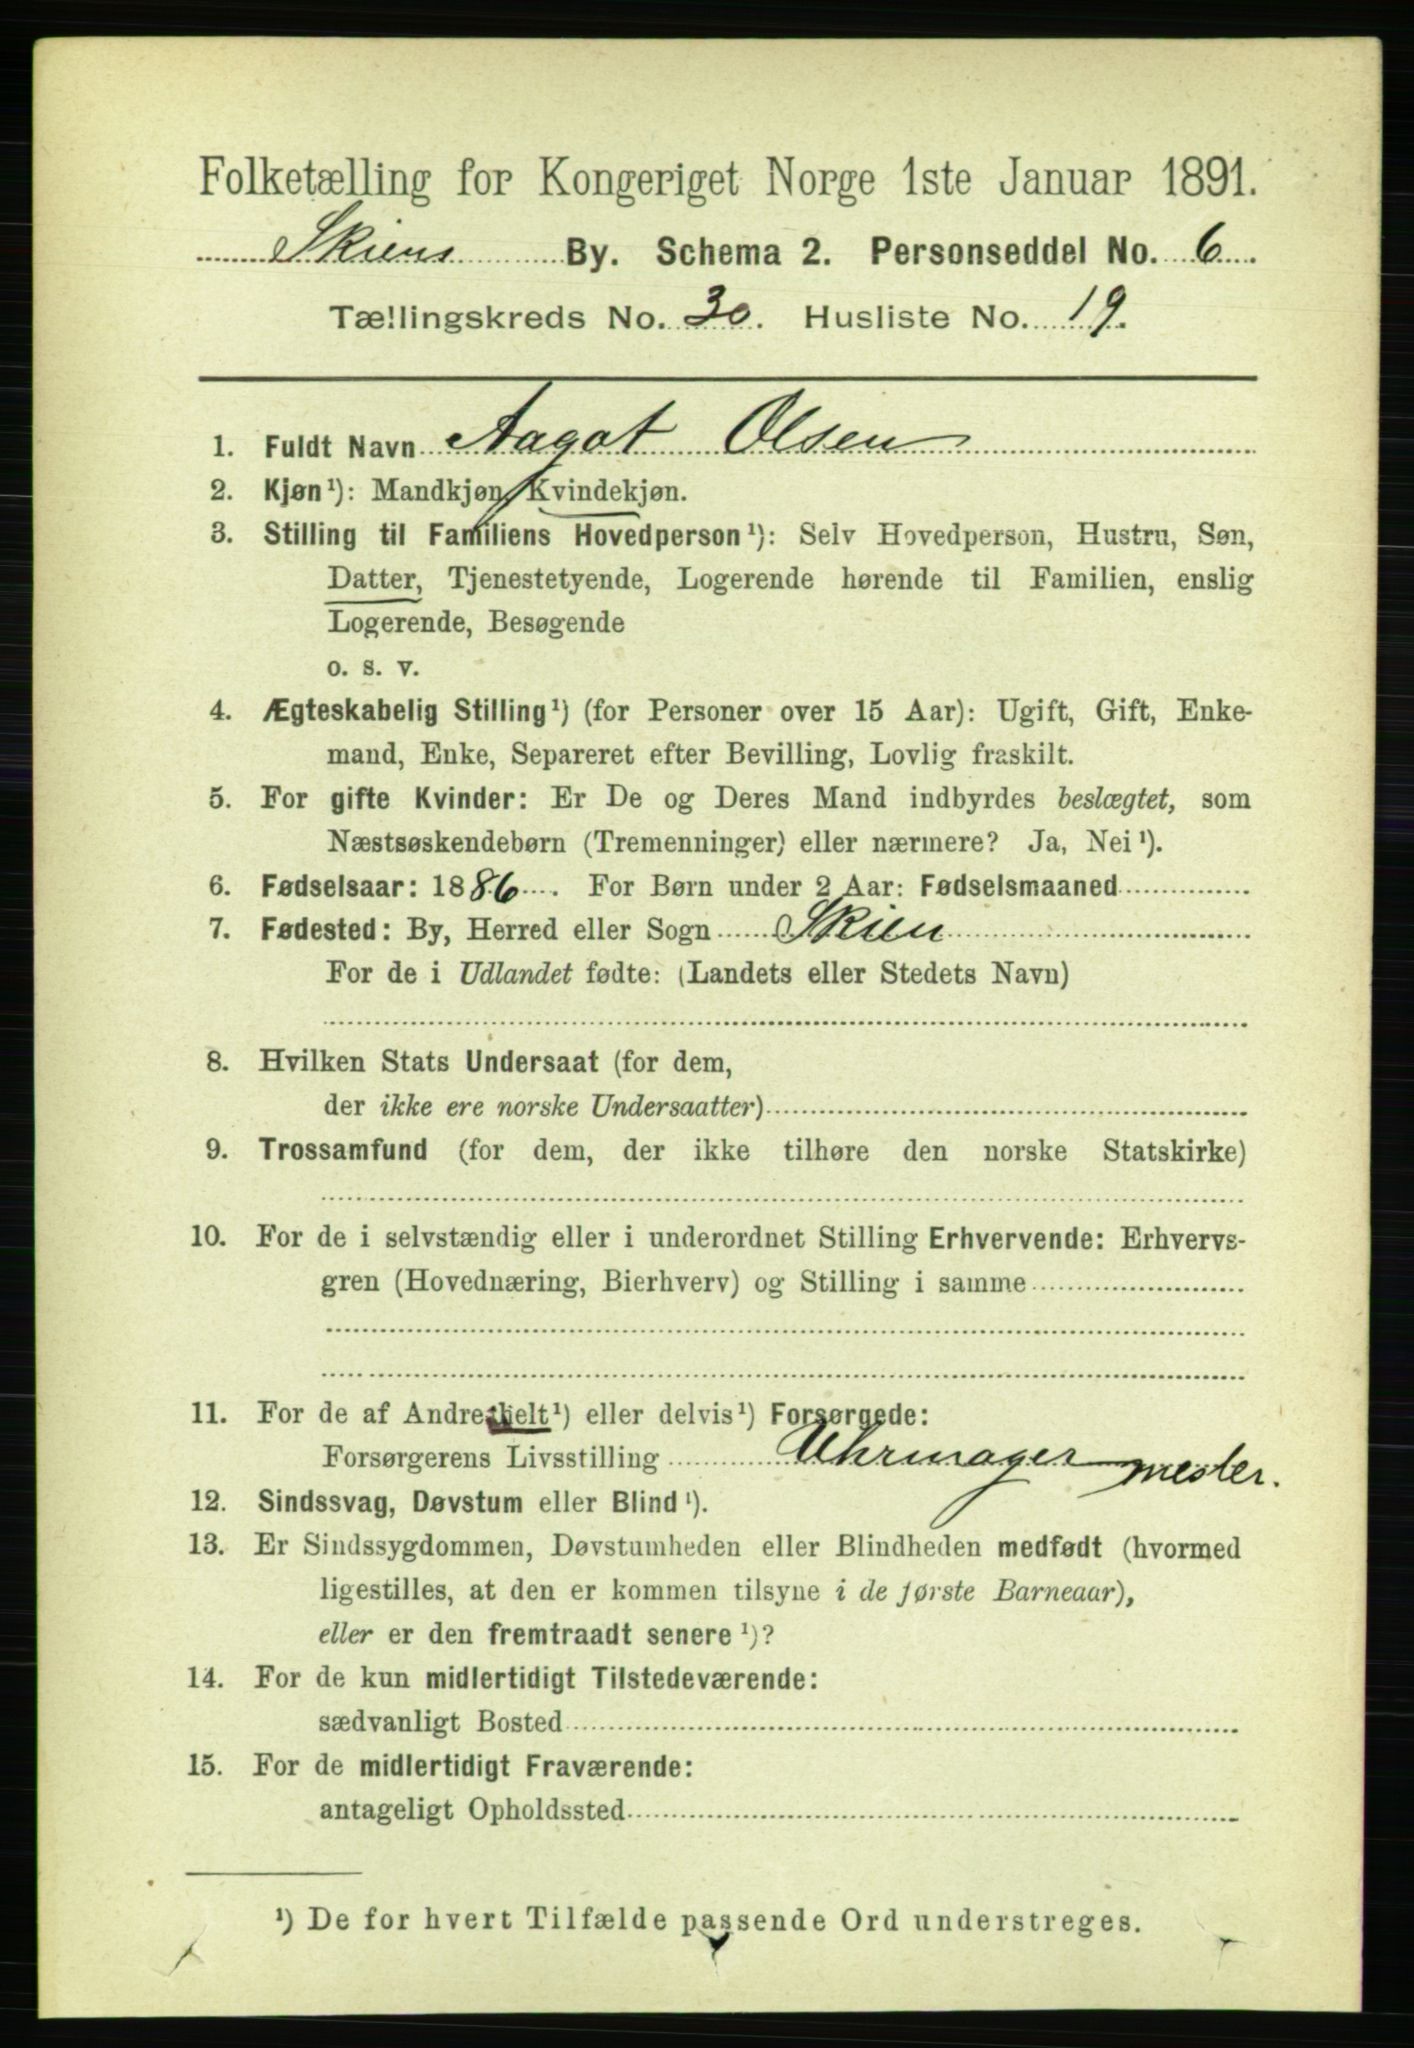 Folketælling for Kongeriget Norge 1ste Januar 1891.
Skiens By. Schema 2. Personseddel No. 6
Tællingskreds No. 30. Husliste No. 19.
1. Fuldt Navn Aagot Olsen
2. Kjøn¹): Mandkjøn, Kvindekjøn.
3. Stilling til Familiens Hovedperson¹): Selv Hovedperson, Hustru, Søn,
Datter, Tjenestetyende, Logerende hørende til Familien, enslig
Logerende, Besøgende
o. s. v.
4. Ægteskabelig Stilling¹) (for Personer over 15 Aar): Ugift, Gift, Enke-
mand, Enke, Separeret efter Bevilling, Lovlig fraskilt.
5. For gifte Kvinder: Er De og Deres Mand indbyrdes beslægtet, som
Næstsøskendebørn (Tremenninger) eller nærmere? Ja, Nei¹).
6. Fødselsaar: 1886. For Børn under 2 Aar: Fødselsmaaned
7. Fødested: By, Herred eller Sogn Skien
For de i Udlandet fødte: (Landets eller Stedets Navn)
8. Hvilken Stats Undersaat (for dem,
der ikke ere norske Undersaatter)
9. Trossamfund (for dem, der ikke tilhøre den norske Statskirke)
10. For de i selvstændig eller i underordnet Stilling Erhvervende: Erhvervs-
gren (Hovednæring, Bierhverv) og Stilling i samme
11. For de af Andre helt¹) eller delvis¹) Forsørgede:
Forsørgerens Livsstilling Uhrmagermester.
12. Sindssvag, Døvstum eller Blind¹).
13. Er Sindssygdommen, Døvstumheden eller Blindheden medfødt (hvormed
ligestilles, at den er kommen tilsyne i de første Barneaar),
eller er den fremtraadt senere¹)?
14. For de kun midlertidigt Tilstedeværende:
sædvanligt Bosted
15. For de midlertidigt Fraværende:
antageligt Opholdssted
¹) De for hvert Tilfælde passende Ord understreges.